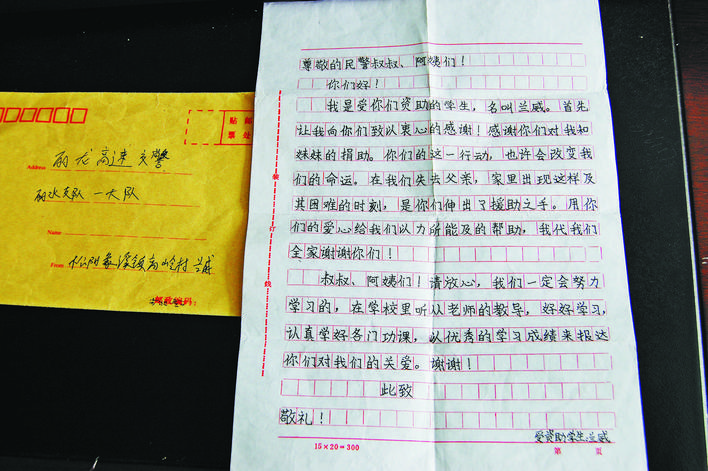 贴 邮
票 处
Address
丽龙高速交警
丽水支队 一大队
Name
From
兰威
邮政编码：
尊敬的民警叔叔、阿姨们！
你们好！
我是受你们资助的学生，名叫兰威。首先
让我向你们致以衷心的感谢！感谢你们对我和
妹妹的捐助。你们的这一行动，也许会改变我
们的命运。在我们失去父亲，家里出现这样及
其困难的时刻，是你们伸出了援助之手。用你
们的爱心给我们以力所能及的帮助，我代我们
全家谢谢你们！
叔叔、阿姨们！请放心，我们一定会努力
学习的，在学校里听从老师的教导，好好学习，
认真学好各门功课，以优秀的学习成绩来报达
你们对我们的关爱。谢谢！
此致
敬礼！
受资助学生：兰威
15×20=300
第 页
装
订
线